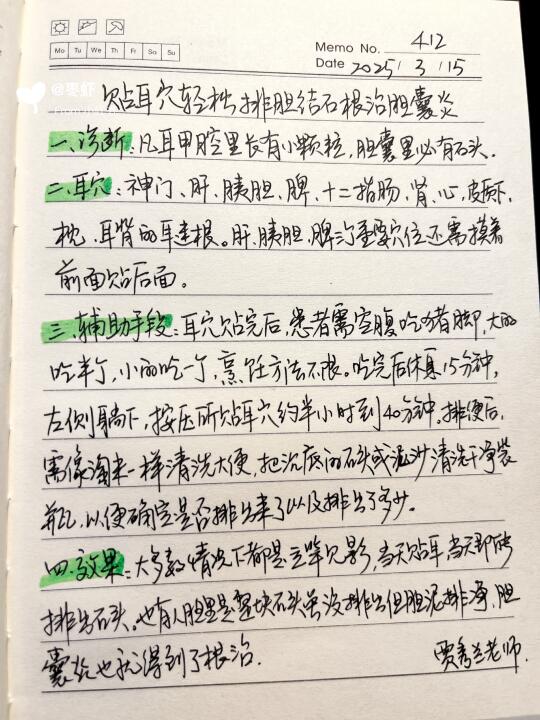 Memo No. 412
Mo Tu We Th Fr Sa Su
Date 2025 / 3 / 15
@枣虾
贴耳穴轻松排胆结石根治胆囊炎
一、诊断：凡耳甲腔里长有小颗粒，胆囊里必有石头。
二、耳穴：神门、肝、胰胆、脾、十二指肠、肾、心、皮质下、
枕、耳背的耳迷根。肝、胰胆、脾沟重要穴位还需摸着
前面贴后面。
三、辅助手段：耳穴贴完后，患者需空腹吃猪脚，大的
吃半个，小的吃一个，烹饪方法不限。吃完后休息15分钟，
左侧躺下，按压所贴耳穴约半小时到40分钟。排便后，
需像淘米一样清洗大便，把沉底的石头或泥沙清洗干净装
瓶，以便确定是否排出来了以及排出了多少。
四、效果：大多数情况下都是立竿见影，当天贴耳当天即能
排出石头。也有人胆里是整块石头虽没排出但胆泥排净，胆
囊炎也就得到了根治.
贾秀兰老师.